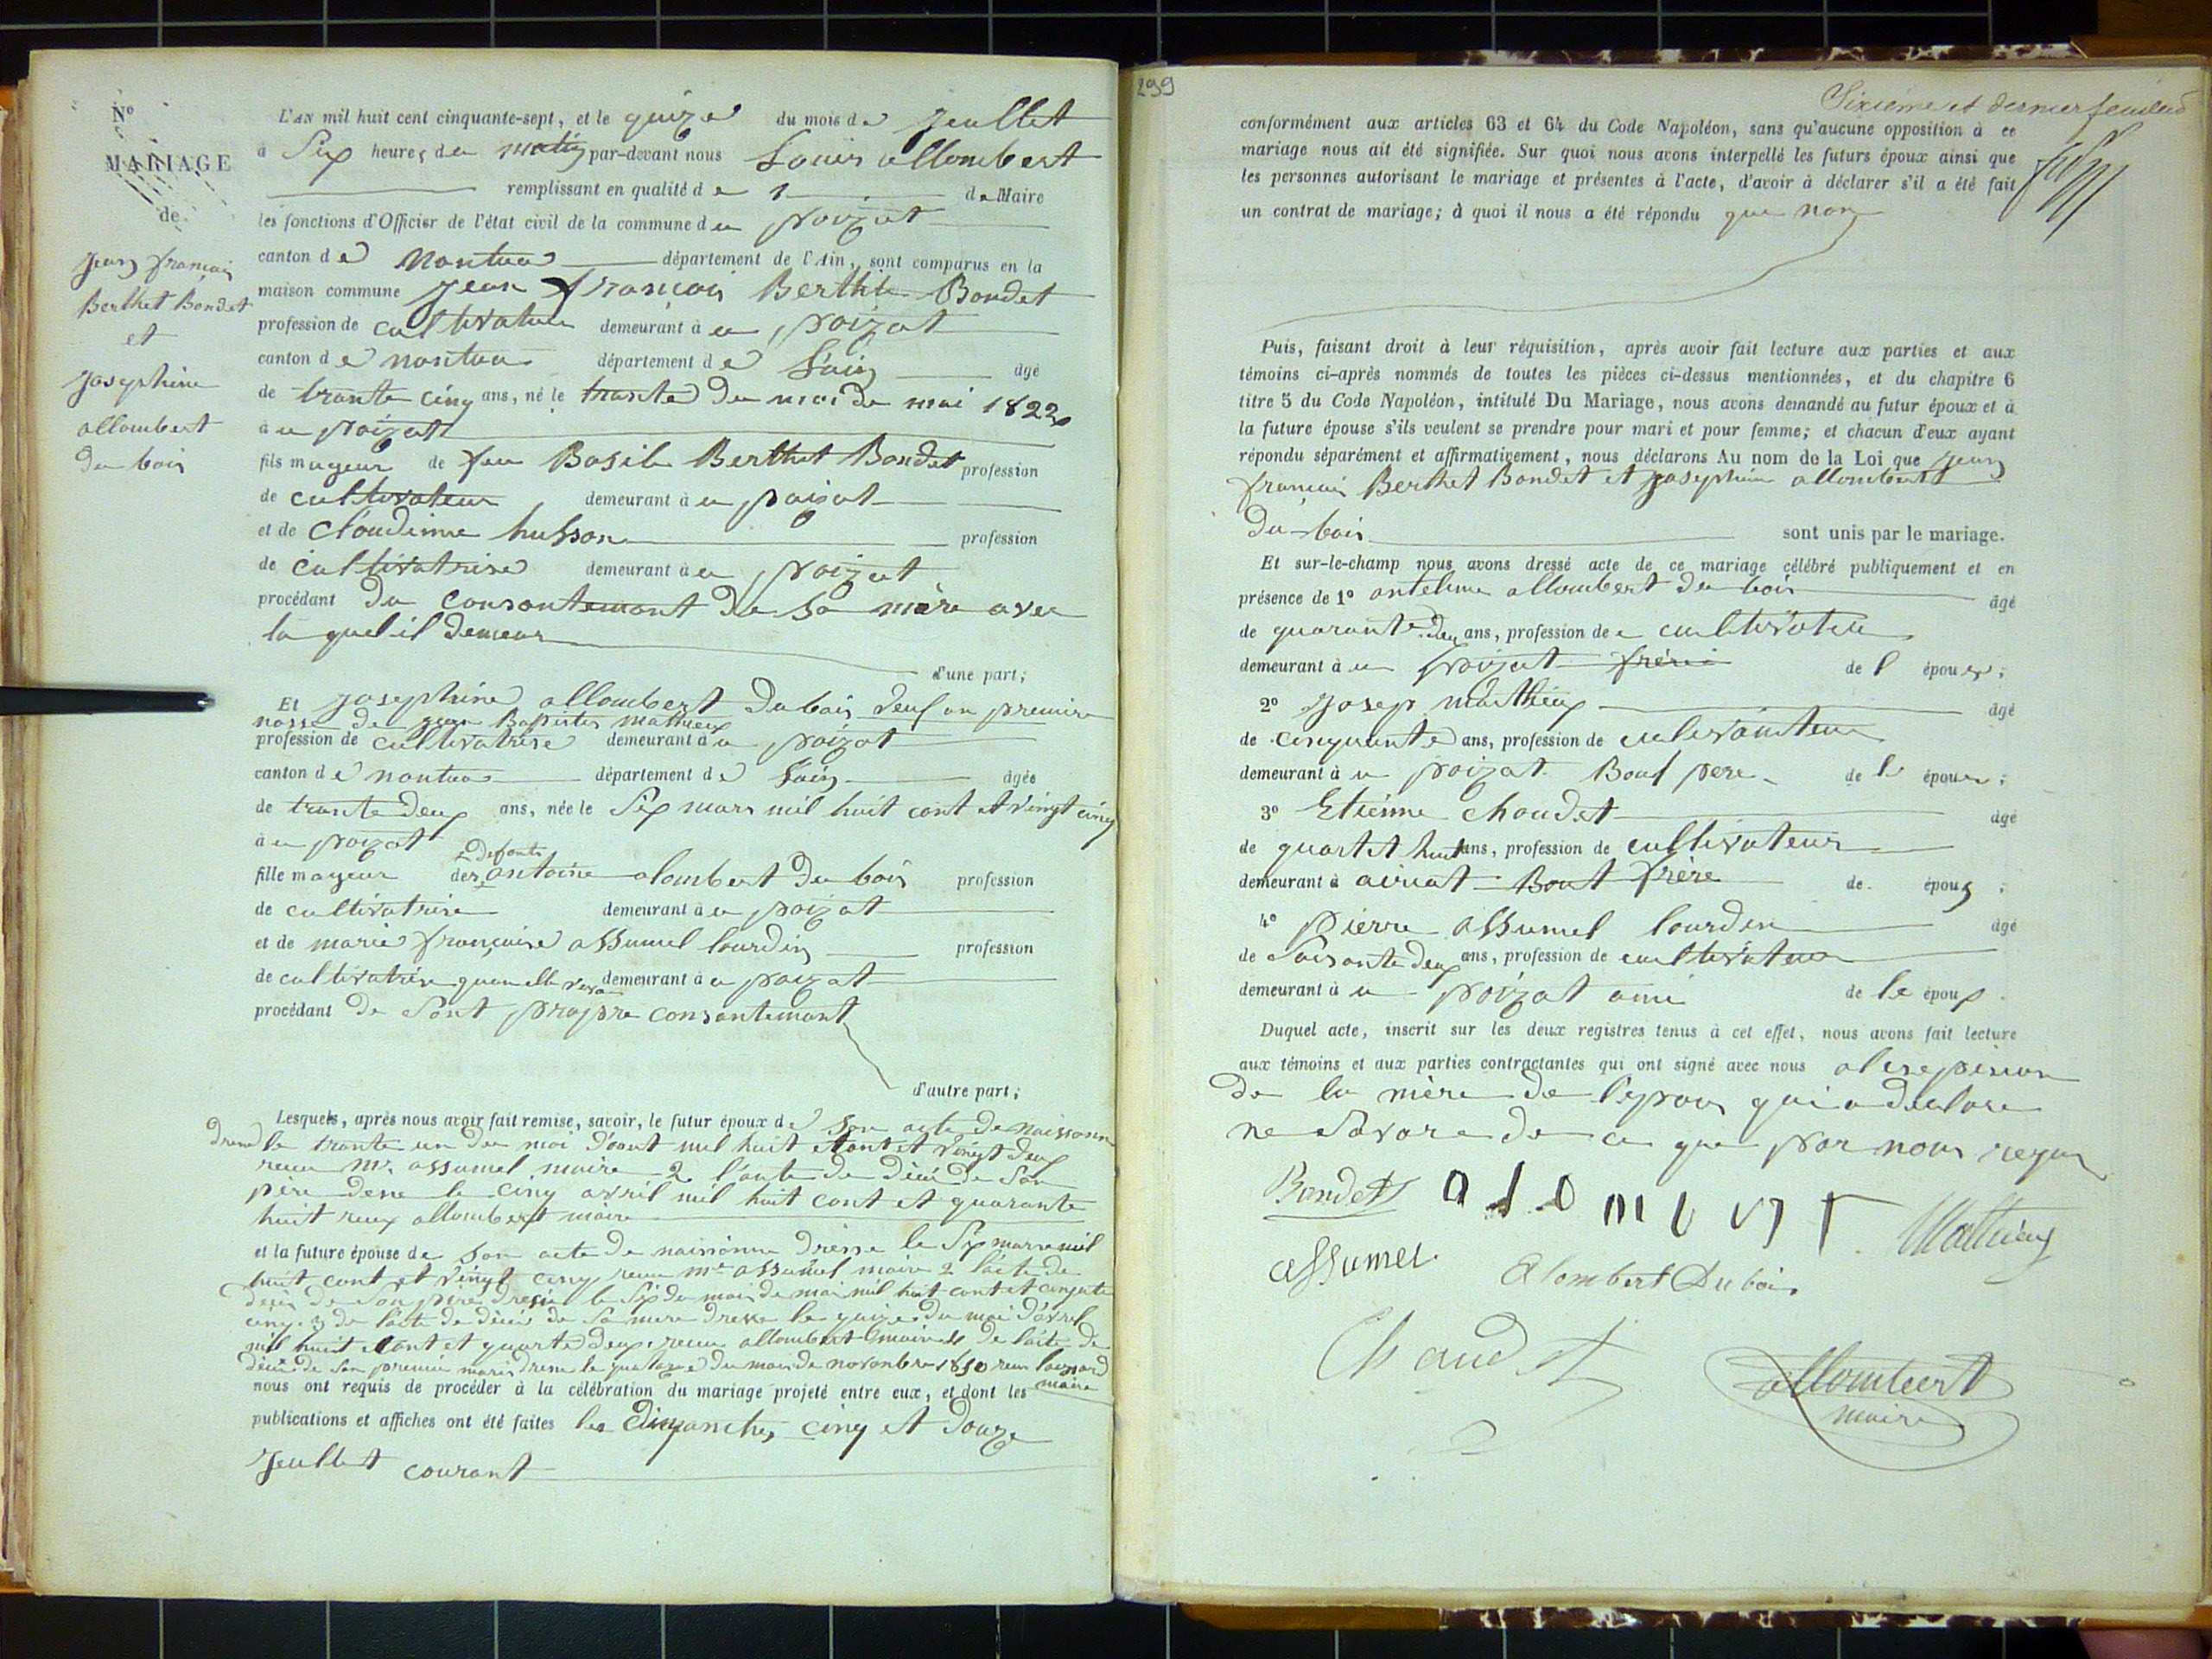 N°
MARIAGE
de
Jean françois
Berthet Bondet
et
Josephine
allombert
du bois
L'AN mil huit cent cinquante-sept, et le quize du mois de Jeullet
à Six heures du matin par-devant nous Louis allombert
remplissant en qualité de de Maire
les fonctions d'Officier de l'état civil de la commune du poizat
canton de nantua département de l'Ain, sont comparus en la
maison commune Jean françois Berthet Bondet
profession de cultivateur demeurant à u poizat
canton de nantua département de L'ain âgé
de trante cinq ans, né le trante du moi de mai 1822
à u poizat
fils mageur de feu Basile Berthet Bondet profession
de cultivateur demeurant à u poizat
et de Cloudinne husson profession
de cultivatrise demeurant à u poizat
procédant du consontemant de sa mère avec
la quel il demeur
d'une part;
Et Josephine allombert Dubois veuf an premire
nosse de jean Baptiste mathieux
profession de cultivatrise demeurant à u poizat
canton de nantua département de L'ain âgée
de trante deux ans, née le Six mars mil huit cent et vingt cinq
à u poizat
fille mageur des defonts antoine alombert du bois profession
de cultivatrise demeurant à u poizat
et de marie françoise assumel lourdin profession
de cultivatrise quan elle demeurant à u poizat
procédant de Sont propre consantemant
d'autre part;
Lesquels, après nous avoir fait remise, savoir, le futur époux de son acte de naissance
dresé le trante un du moi d'aout mil huit cant et vingt deux
reçu Mr. assumel maire 2 l'acte de décé de son
père dresé le cinq avril mil huit cent et quarante
huit reçu allombert maire
et la future épouse de son acte de naissance dresse le Six marse mil
huit cent et vingt cinq reçu Mr assumel maire 2 l'acte de
décès de son père dresé le Six du moi de mai mil huit cent et cinquante
cinq 3 de l'acte de décès de sa mere dresse le quize du moi d'avril
mil huit cant et quarte deux reçu allombert maire 4 de l'acte de
décé de son premié mari dresé le quatorze du moi de novenbre 1850 reçu
maire
nous ont requis de procéder à la célébration du mariage projeté entre eux, et dont les
publications et affiches ont été faites les Dimanches cinq et douze
Jeullet courant
299
Sixième et dernier feuillet
conformément aux articles 63 et 64 du Code Napoléon, sans qu'aucune opposition à ce
mariage nous ait été signifiée. Sur quoi nous avons interpellé les futurs époux ainsi que
les personnes autorisant le mariage et présentes à l'acte, d'avoir à déclarer s'il a été fait
un contrat de mariage; à quoi il nous a été répondu que non
Puis, faisant droit à leur réquisition, après avoir fait lecture aux parties et aux
témoins ci-après nommés de toutes les pièces ci-dessus mentionnées, et du chapitre 6
titre 5 du Code Napoléon, intitulé Du Mariage, nous avons demandé au futur époux et à
la future épouse s'ils veulent se prendre pour mari et pour femme; et chacun d'eux ayant
répondu séparément et affirmativement, nous déclarons Au nom de la Loi que Jean
françois Berthet Bondet et Josephine allombert
du bois sont unis par le mariage.
Et sur-le-champ nous avons dressé acte de ce mariage célébré publiquement et en
présence de 1° antelme allombert du bois âgé
de quarante deu ans, profession de cultivateu
demeurant à u poizat frére de l épouse;
2° Josep mathieux âgé
de cinquante ans, profession de culivauteur
demeurant à u poizat Bout pere de l épouse;
3° Etienne Chaudet âgé
de quart et huit ans, profession de cultivateur
demeurant à airiat Bout frère de époux;
4° Pierre assumel lourdin âgé
de Soisante deux ans, profession de cultivateur
demeurant à u poizat ami de le époux.
Duquel acte, inscrit sur les deux registres tenus à cet effet, nous avons fait lecture
aux témoins et aux parties contractantes qui ont signé avec nous
de la mère de l'epoux qui a declare
ne Savoir de ce que par nous requis
Bondet alombert Mathieux
assumel Alombert Dubois
Chaudet allombert
maire